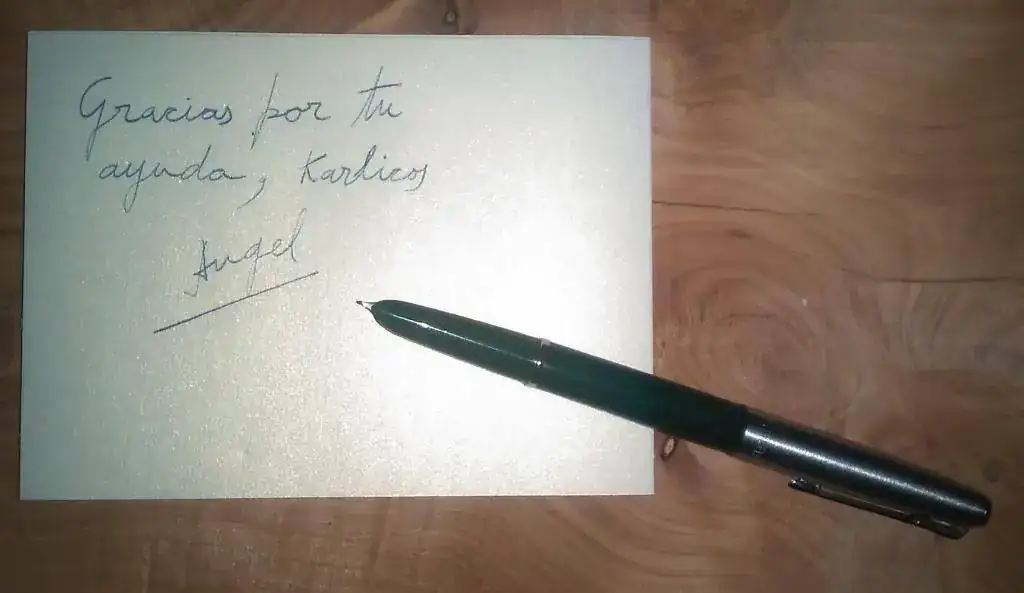 Gracias por tu
ayuda, Karlicos
Angel